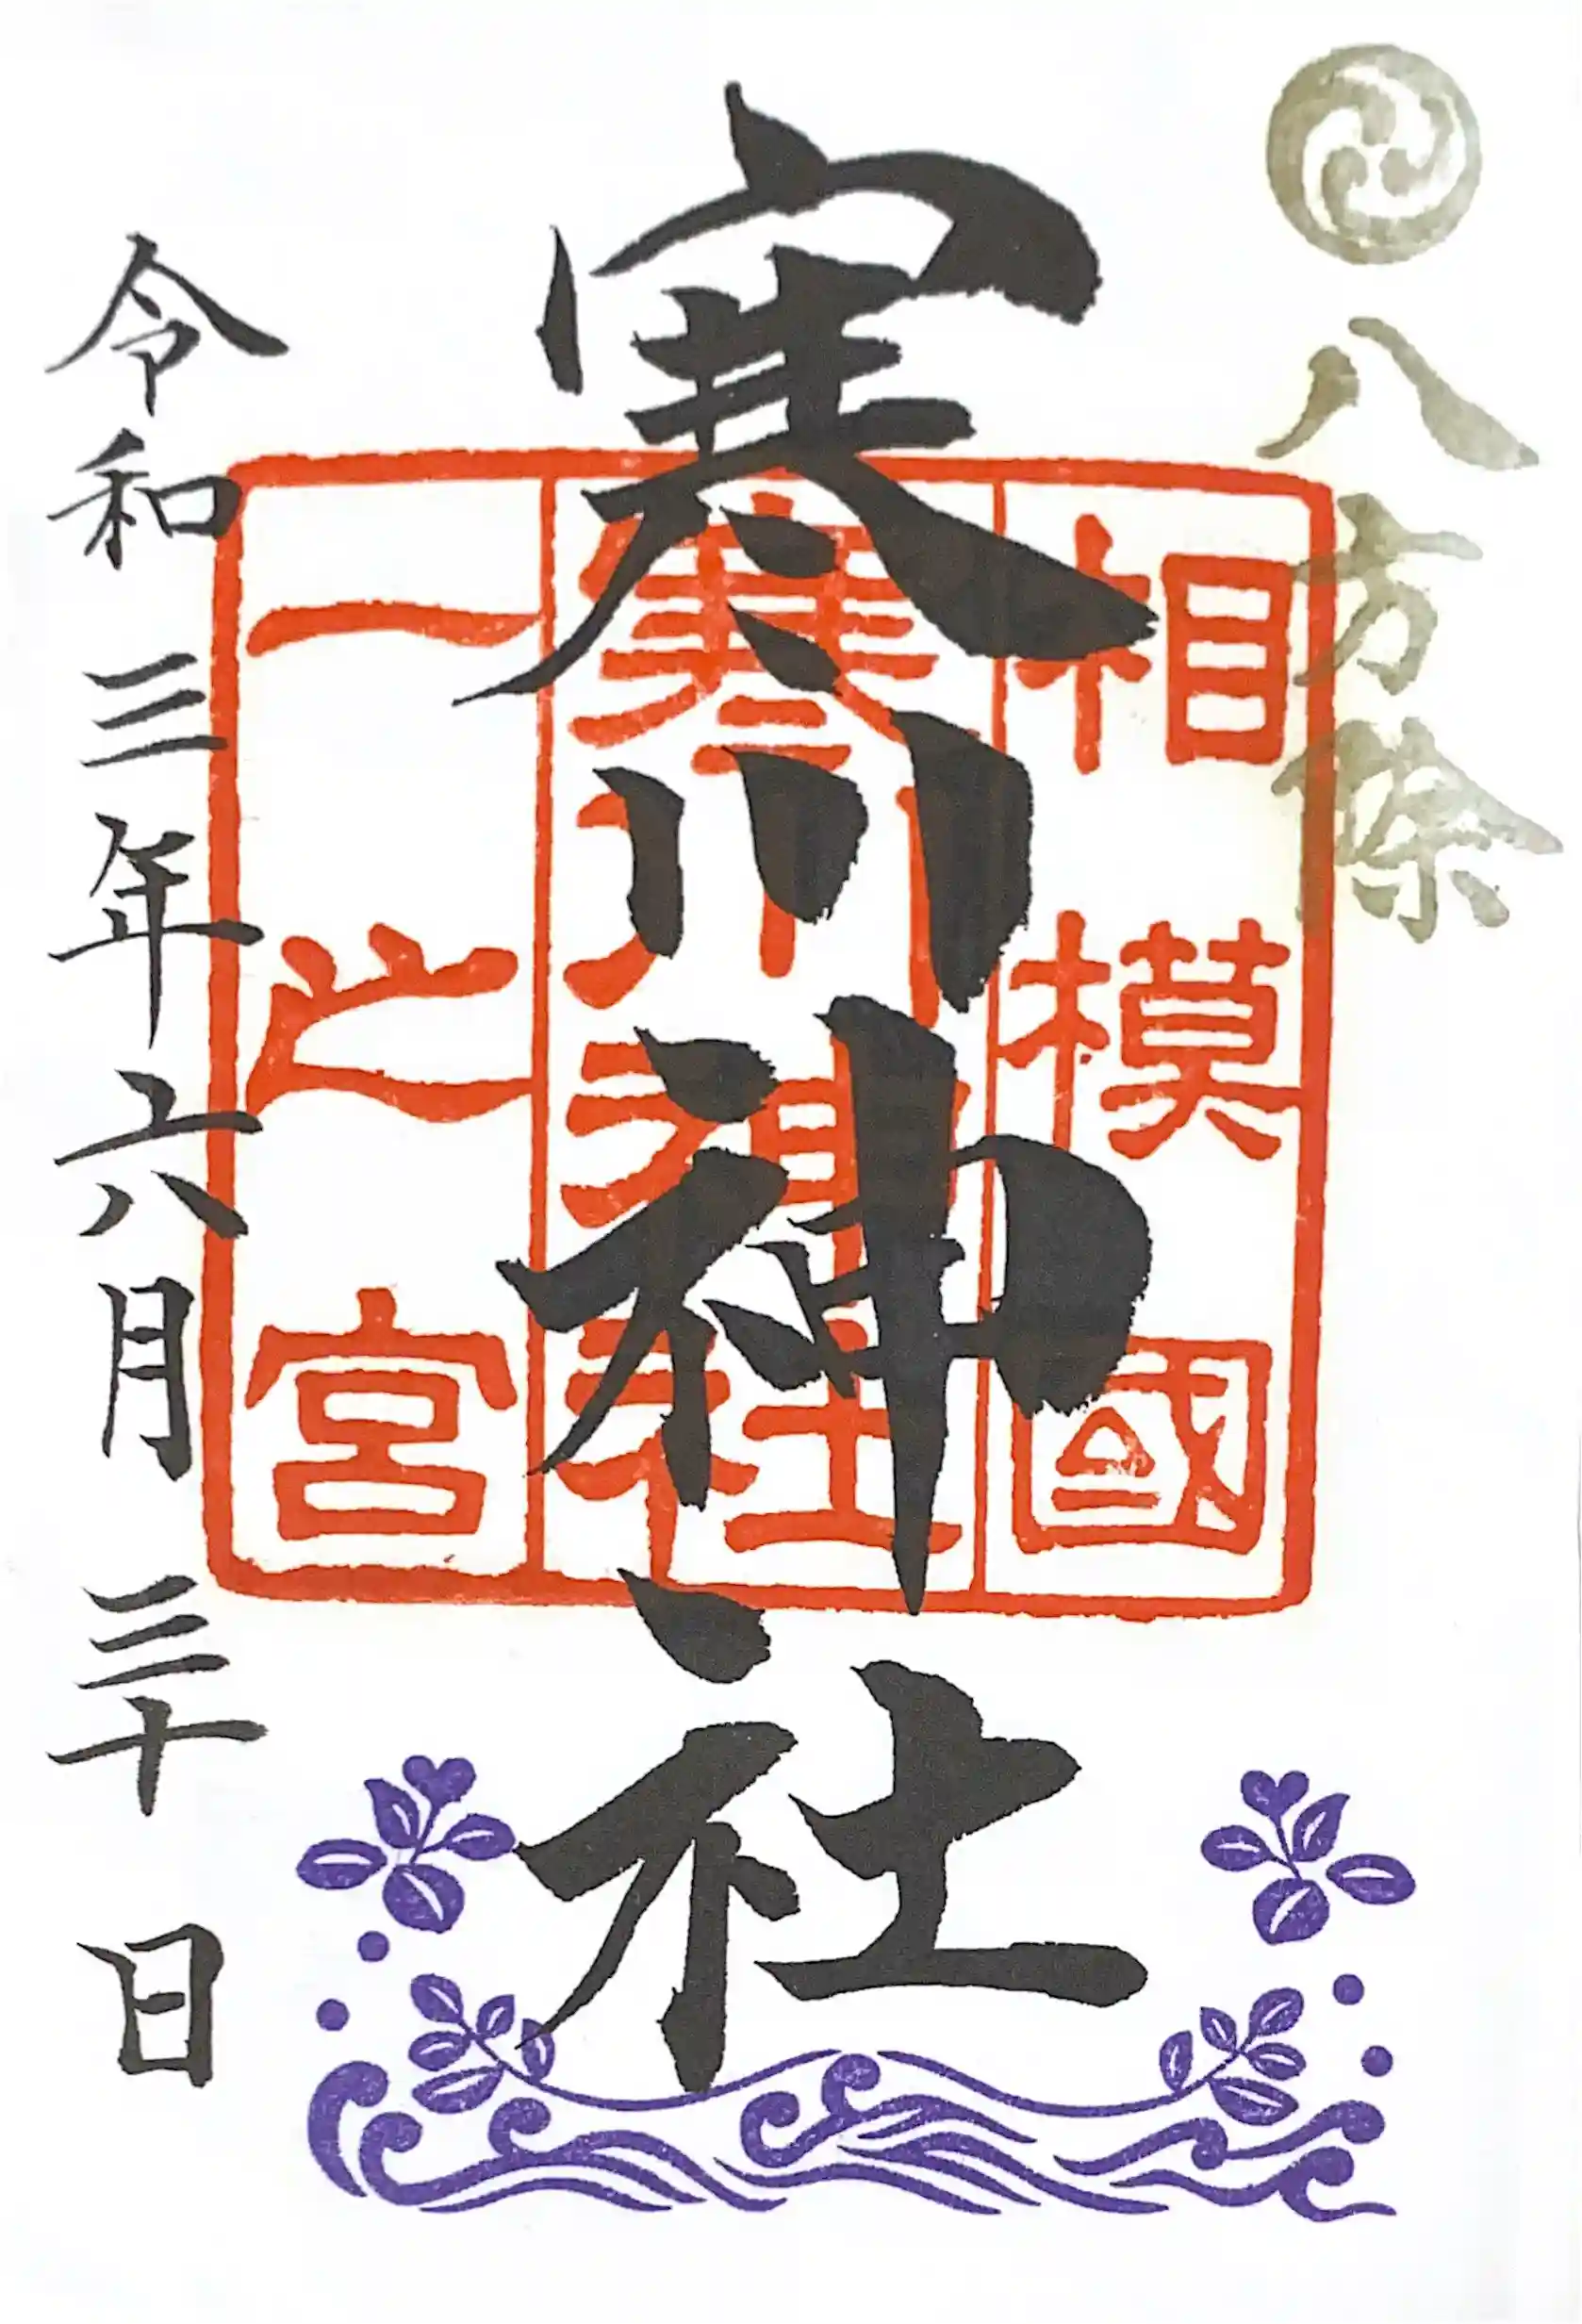 八方除
相模國
寒川神社
一之宮
寒川神社
令和三年六月三十日